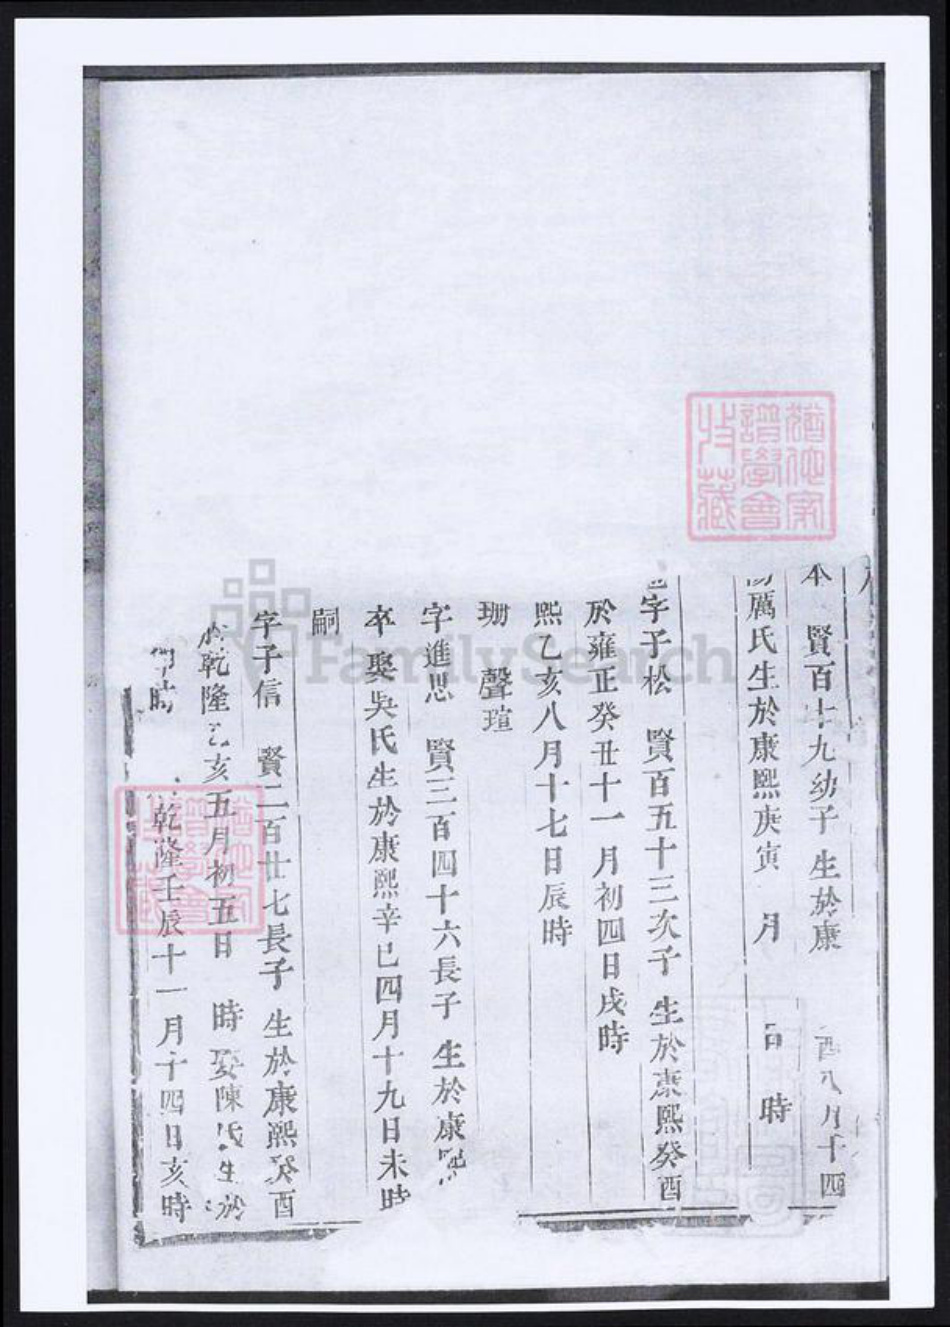 本 賢百十九幼子 生於康 酉八月十四
厲氏生於康熙庚寅 月 日 時
字子松 賢百五十三次子 生於康熙癸酉
於雍正癸丑十一月初四日戌時
熙乙亥八月十七日辰時
珊 聲瑄
字進思 賢三百四十六長子 生於康熙
卒 娶吳氏生於康熙辛巳四月十九日未時
嗣
字子信 賢二百廿七長子 生於康熙癸酉
於乾隆乙亥五月初五日 時 娶陳氏生於
時 乾隆壬辰十一月十四日亥時
譜學會
收藏
FamilySearch